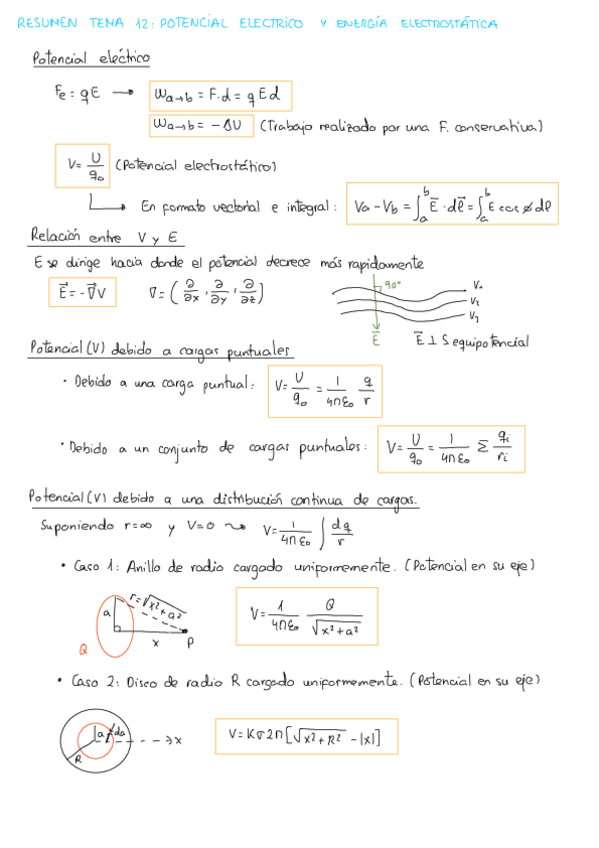 RESUMEN TEMA 12: POTENCIAL ELECTRICO Y ENERGÍA ELECTROSTÁTICA
Potencial eléctrico
Fe = qE → Wa→b = F·d = qEd
Wa→b = -ΔU (Trabajo realizado por una F. conservativa)
V = U/q₀ (Potencial electrostático)
En formato vectorial e integral: Va - Vb = ∫ₐᵇ E⃗·dℓ⃗ = ∫ₐᵇ E cos φ dℓ
Relación entre V y E
E se dirige hacia donde el potencial decrece más rapidamente
E⃗ = -∇⃗V ∇ = (∂/∂x, ∂/∂y, ∂/∂z)
90°
V₁
V₂
V₃
E⃗
E⃗ ⊥ S equipotencial
Potencial (V) debido a cargas puntuales
· Debido a una carga puntual: V = U/q₀ = 1/4πε₀ q/r
· Debido a un conjunto de cargas puntuales: V = U/q₀ = 1/4πε₀ Σ qi/ri
Potencial (V) debido a una distribución continua de cargas.
Suponiendo r=∞ y V=0 ⇝ V = 1/4πε₀ ∫ dq/r
• Caso 1: Anillo de radio cargado uniformemente. (Potencial en su eje)
r=√x²+a²
a
x
P
Q
V = 1/4πε₀ Q/√x²+a²
• Caso 2: Disco de radio R cargado uniformemente. (Potencial en su eje)
a
da
→x
R
V = Kσ2π[√x²+R² - |x|]